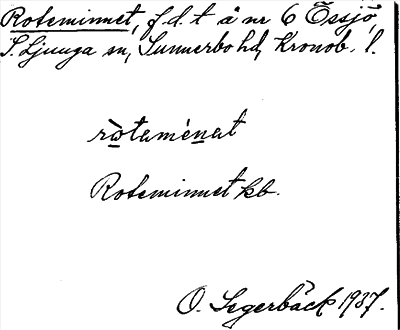 Roteminnet, f.d.t å nr 6 Össjö,
S. Ljunga sn, Sunnerbo hd, Kronob. l.
ròtaménat
Roteminnet kb.
O. Segerbäck 1937.